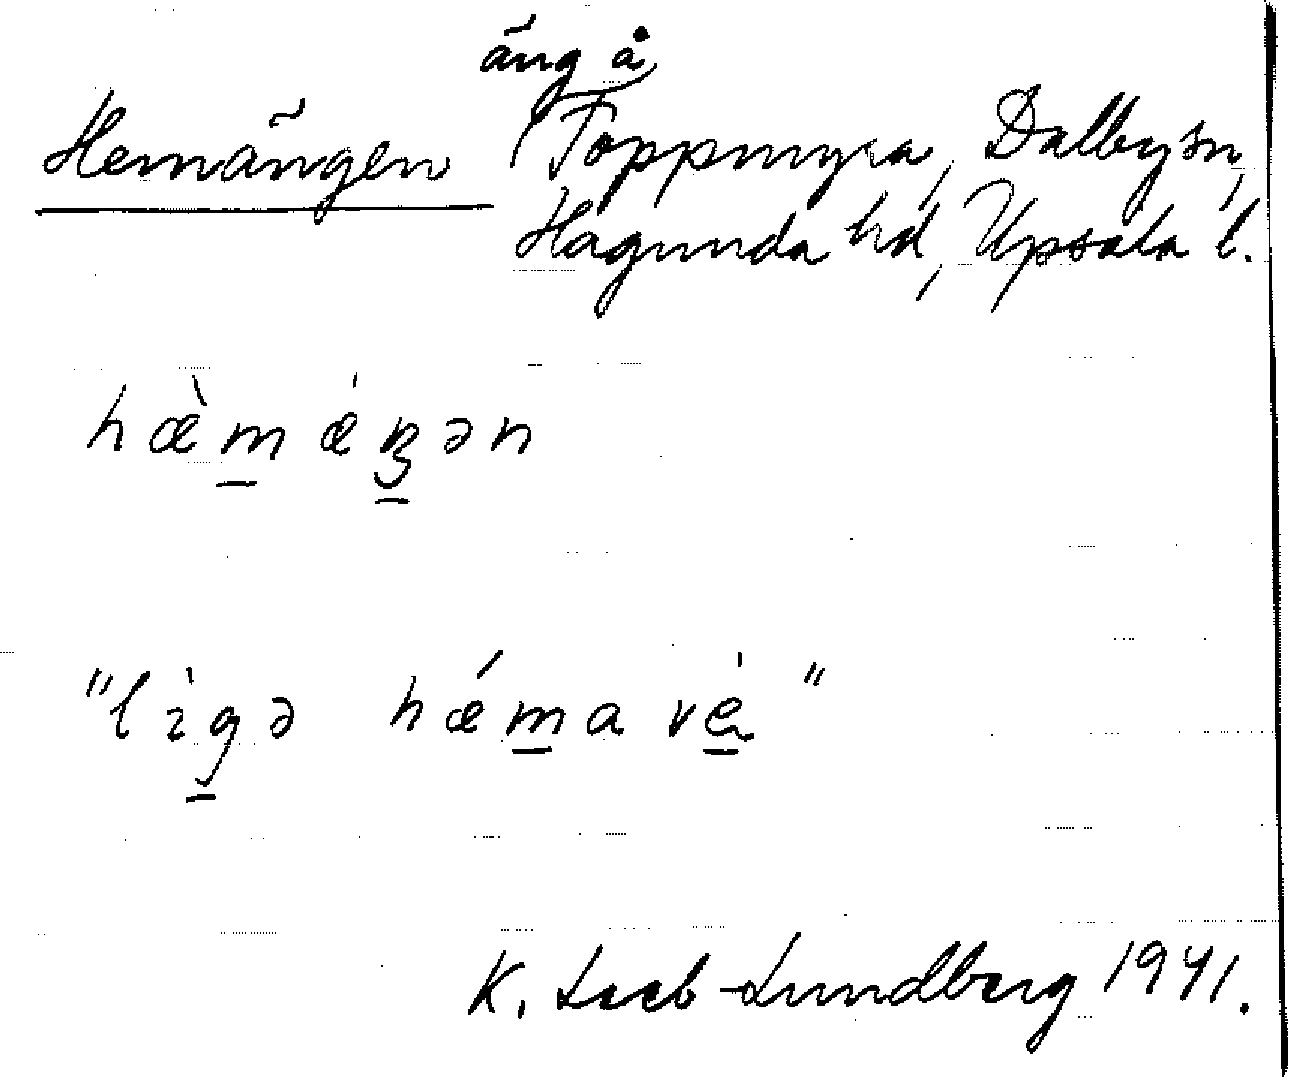 äng å
Hemängen Toppmyra, Dalby sn,
Hagunda hd, Upsala l.
hæ̀m̲ǽᶇ̲ən
"lìg̲ə hǽm̲a vė̲"
K. Leeb-Lundberg 1941.